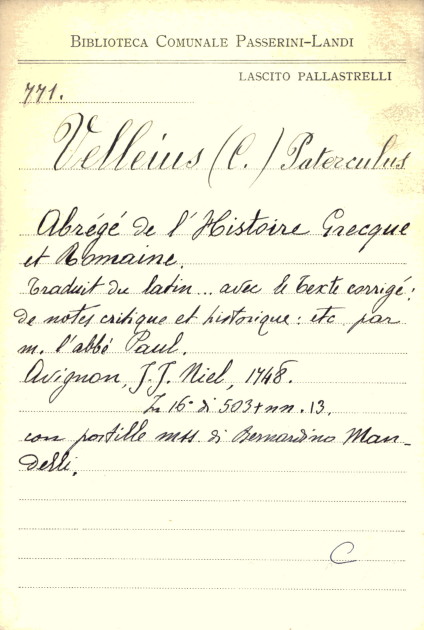 BIBLIOTECA COMUNALE PASSERINI-LANDI
LASCITO PALLASTRELLI
771.
Velleius (C.) Paterculus
Abrégé de l'Histoire Grecque
et Romaine.
Traduit du latin... avec le Texte corrigé:
de notes critique et historique: etc par
m. l'abbé Paul.
Avignon, J. J. Niel, 1748.
In 16° di 503+nn. 13.
con postille mss. di Bernardino Man-
delli.
C